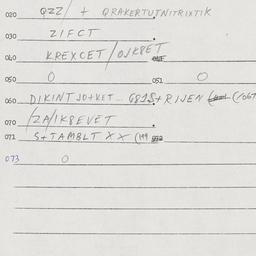 020 QZZ/ + QRAKERTUTNITRIXTIK
030 ZIFCT
040 KREXCET/OJKBET
050 0 051 0
060 DIKINTJO+KET... G81S+RIJEN
070 /ZA/IK8EVET
071 S+TAMBLT XX (M9
073 0